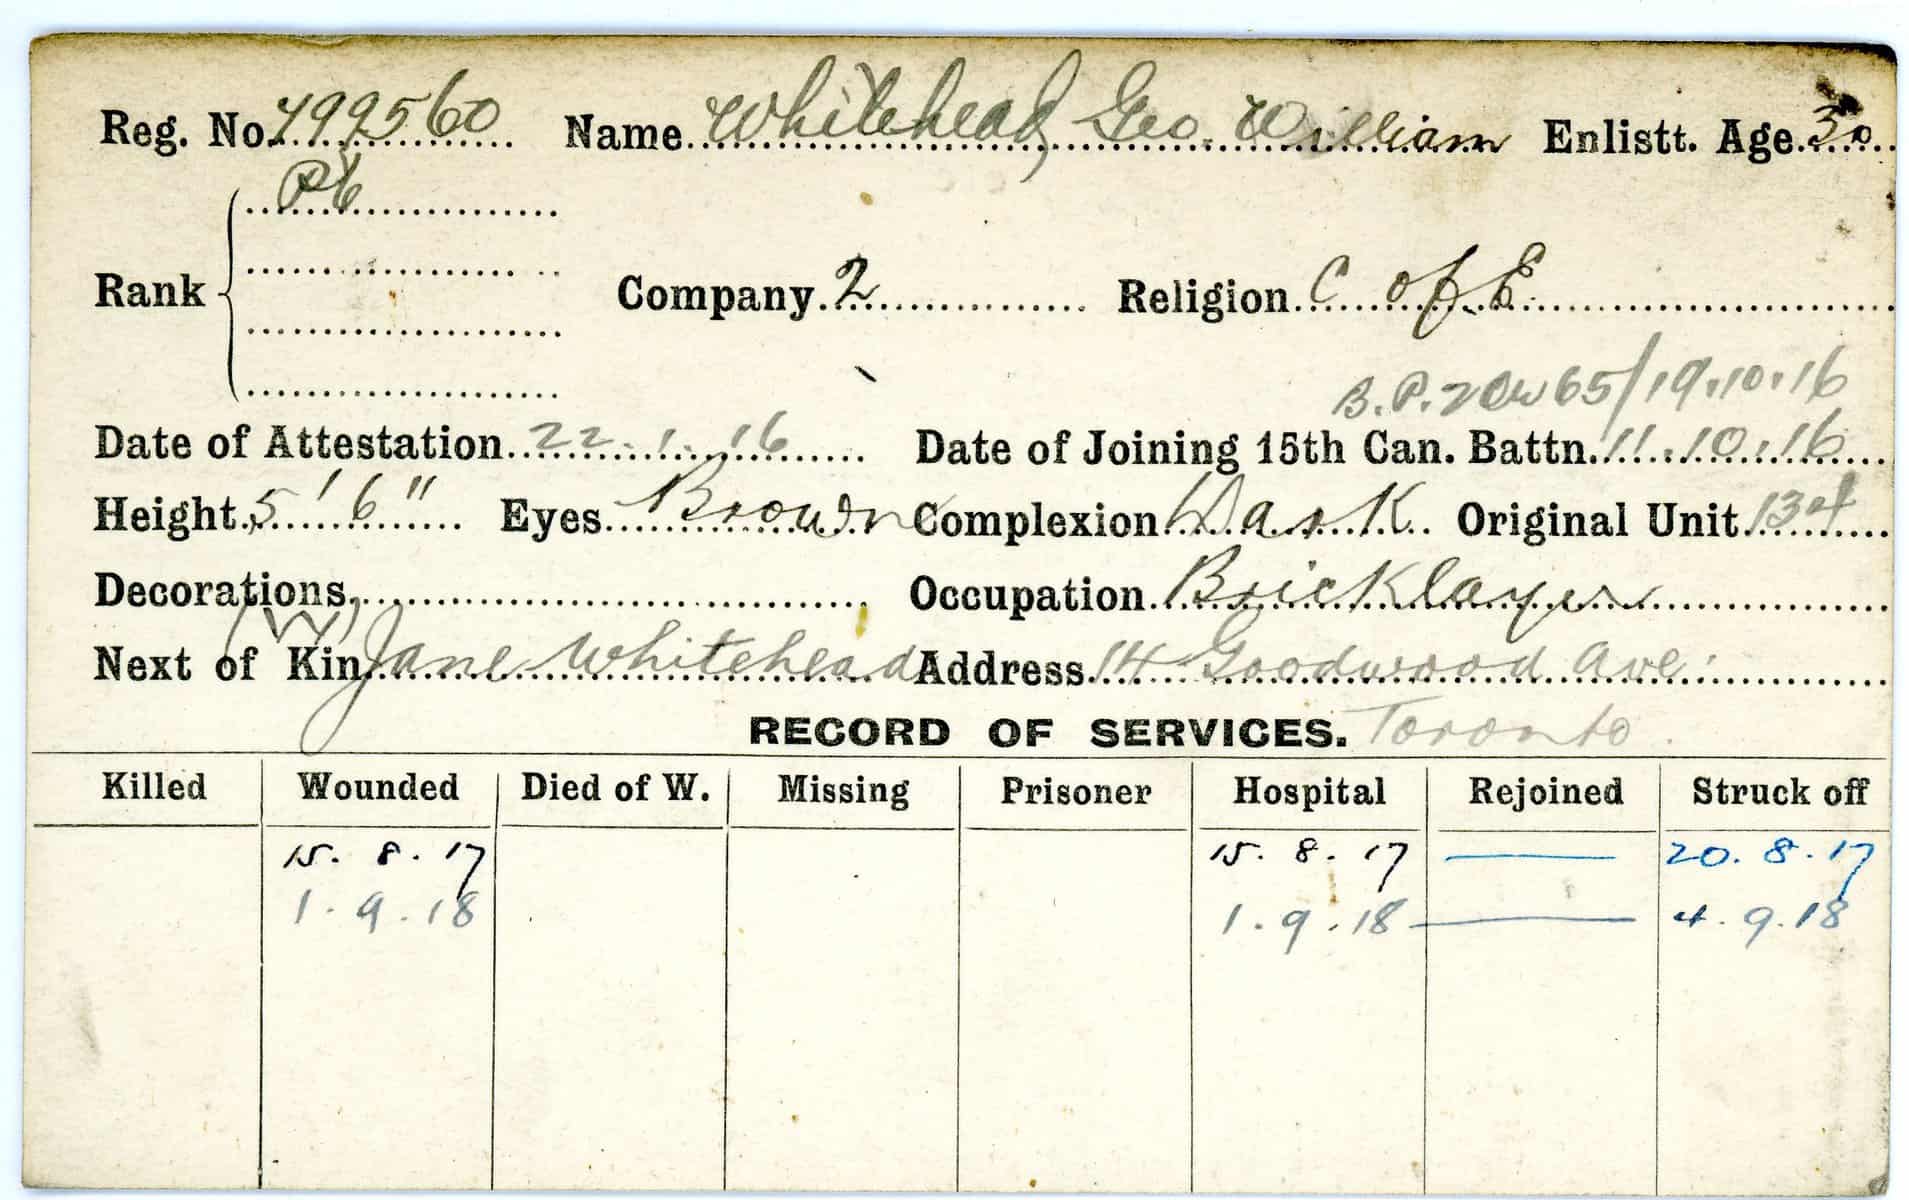 Reg. No. 799560 Name Whitehead, Geo. William Enlistt. Age 30
Pte
Rank Company 2 Religion C of E
B.P.2 65/19.10.16
Date of Attestation 22.1.16 Date of Joining 15th Can. Battn. 11.10.16
Height 5' 6" Eyes Brown Complexion Dark Original Unit 134
Decorations Occupation Bricklayer
(W)
Next of Kin Jane Whitehead Address 14 Goodwood Ave.
RECORD OF SERVICES. Toronto.
Killed Wounded Died of W. Missing Prisoner Hospital Rejoined Struck off
15.8.17 15.8.17 — 20.8.17
1.9.18 1.9.18 — 4.9.18